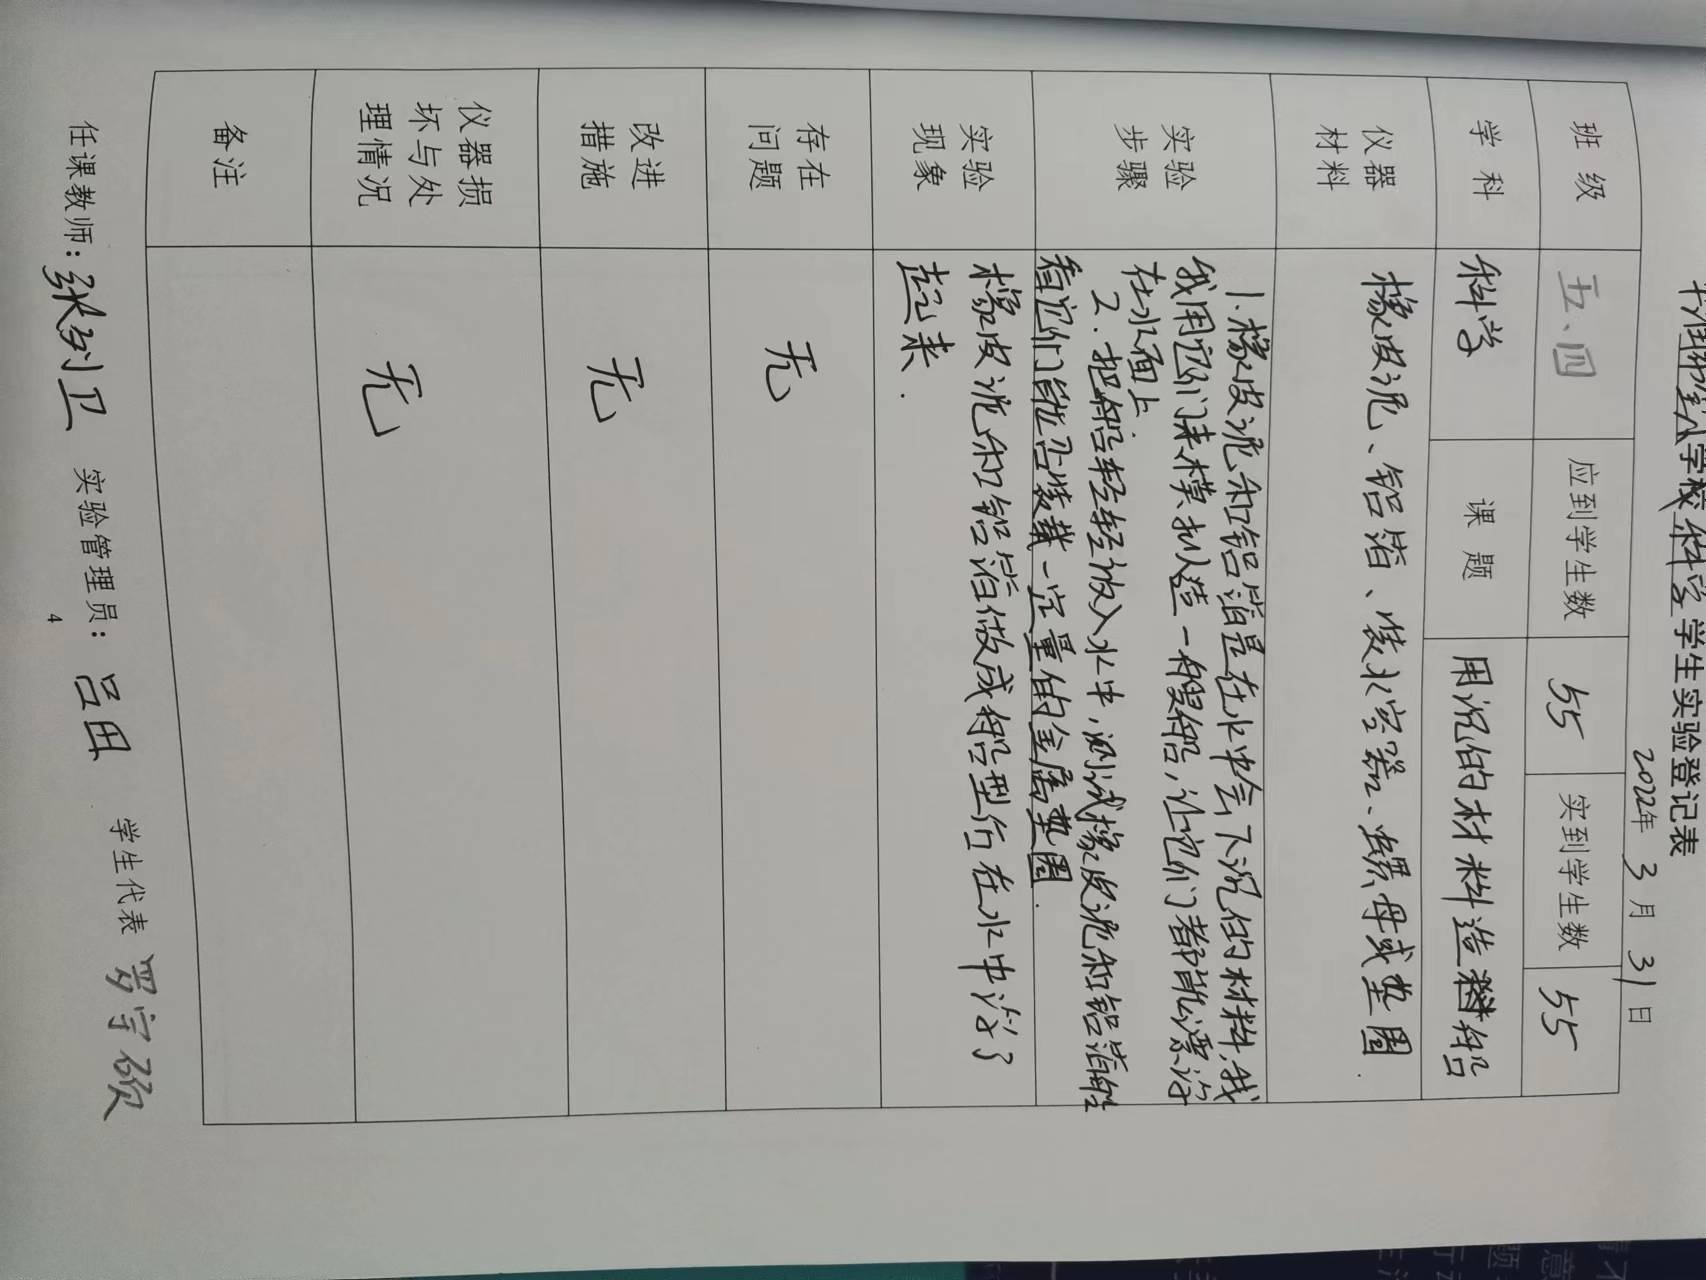 学校科学学生实验登记表
2022年3月31日
班级 五、四 应到学生数 55 实到学生数 55
学科 科学 课题 用沉的材料造船
仪器
材料
橡皮泥、铝箔、装水容器、螺母或垫圈.
实验
步骤
1.橡皮泥和铝箔是在水中会下沉的材料,我
我用它们来模拟造一艘船,让它们都能漂浮
在水面上.
2.把船轻轻放入水中,测试橡皮泥和铝箔船
看它们能否装载一定量的金属垫圈.
实验
现象
橡皮泥和铝箔做成船型后在水中浮了
起来.
存在
问题
无
改进
措施
无
仪器损
坏与处
理情况
无
备注
任课教师:张列卫 实验管理员:吕田 学生代表 罗宇硕
4